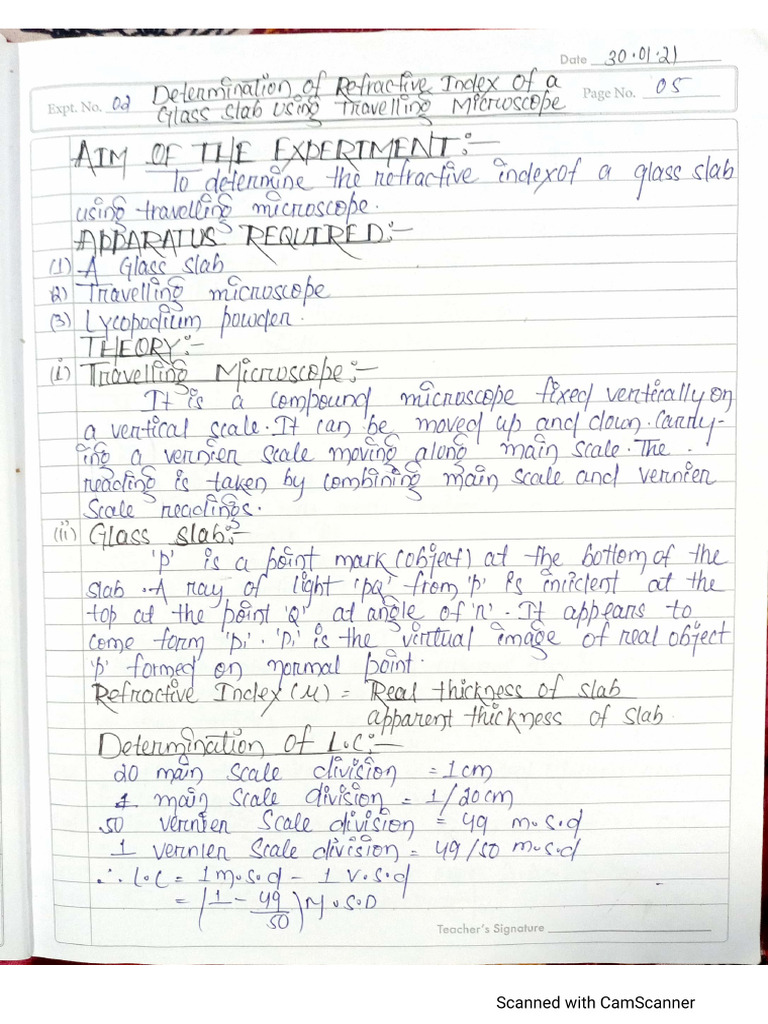 Date 30.01.21
Expt. No. 02 Determination of Refractive Index Of a
Glass Slab Using Travelling Microscope
Page No. 05
AIM OF THE EXPERIMENT:-
To determine the refractive index of a glass slab
using travelling microscope.
APPARATUS REQUIRED:-
(1) A Glass slab
2) Travelling microscope
(3) Lycopodium powder.
THEORY:-
(i) Travelling Microscope:-
It is a compound microscope fixed vertically on
a vertical scale. It can be moved up and down. Carry-
ing a vernier scale moving along main scale. The
reading is taken by combining main scale and vernier
Scale readings.
(ii) Glass slab:-
'p' is a point mark (object) at the bottom of the
slab. A ray of light 'pQ' from 'p' is incident at the
top at the point 'Q' at angle of 'r'. It appears to
come form 'p1'. 'p1' is the virtual image of real object
'p' formed on normal point.
Refractive Index (μ) = Real thickness of slab
apparent thickness of slab.
Determination of L.C:-
20 main scale division = 1cm
1 main scale division = 1/20cm
50 vernier Scale division = 49 m.s.d
1 vernier Scale division = 49/50 m.s.d
∴ L.C = 1 m.s.d - 1 v.s.d
= (1 - 49/50) M.S.D
Teacher's Signature
Scanned with CamScanner